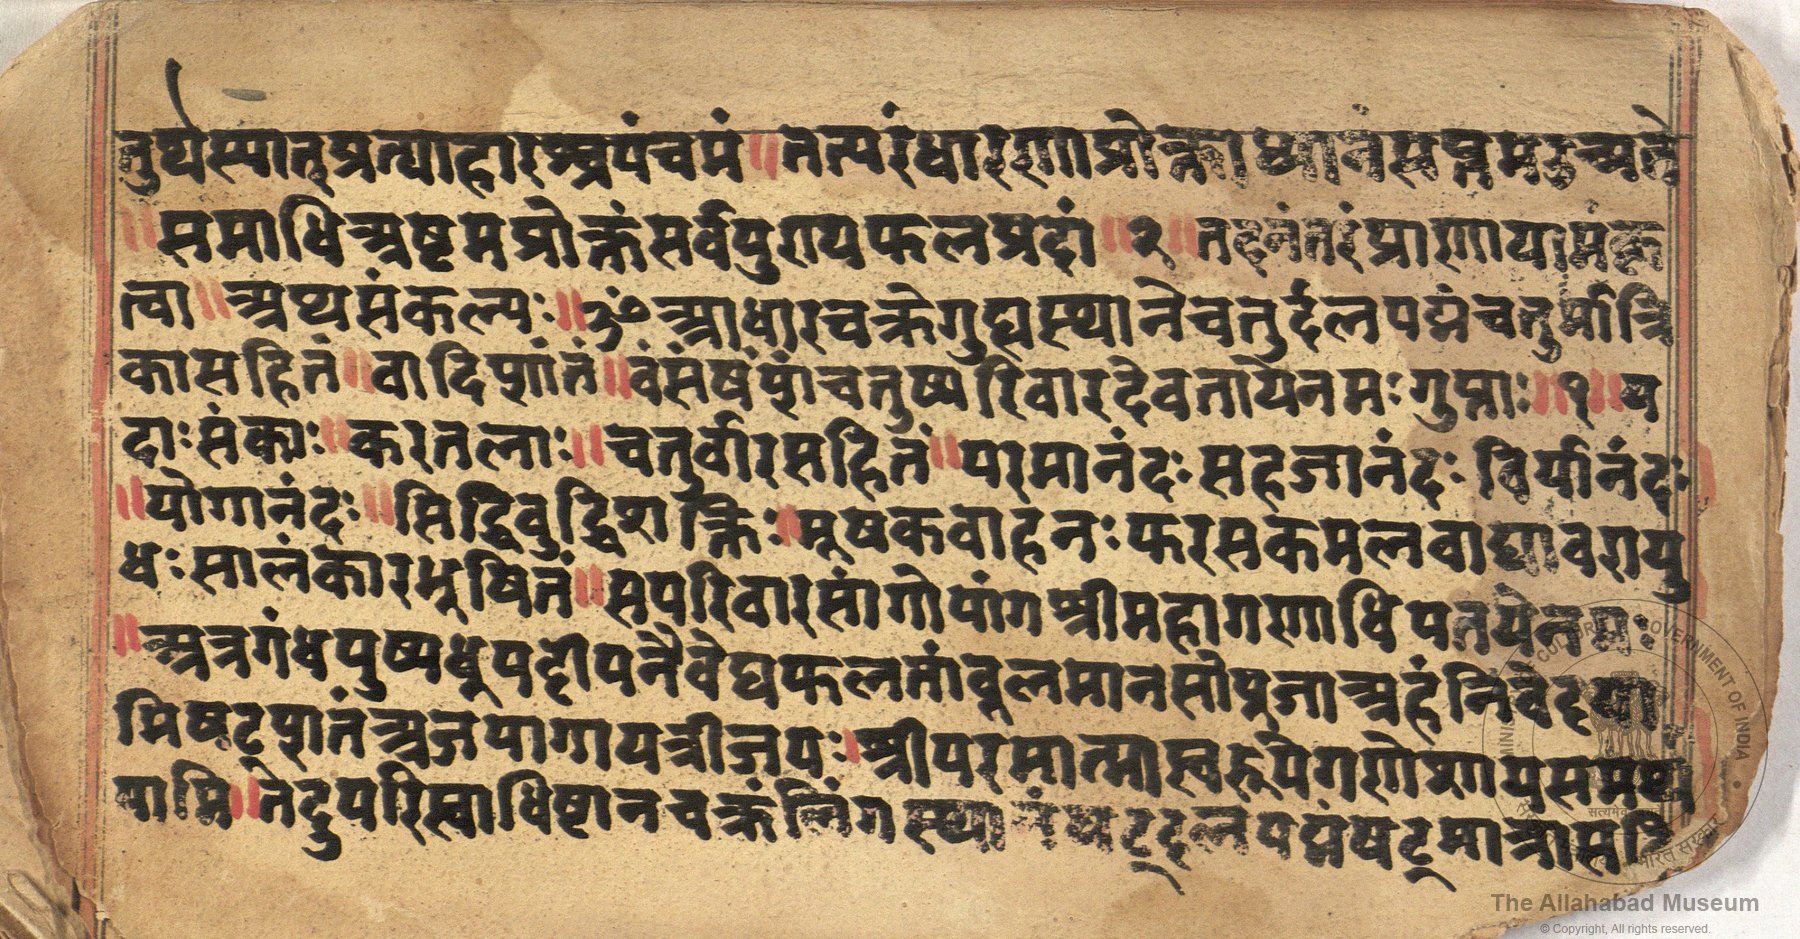 तुर्थस्यात्प्रत्याहारश्चपंचमं॥तत्परंधारणाप्रोक्ताध्यानंसप्तममुच्यते
॥समाधिअष्टमप्रोक्तंसर्वपुण्यफलप्रदां॥२॥तदनंतरंप्राणायामंकृ
त्वा॥अथसंकल्पः॥ॐआधारचक्रेगुह्यस्थानेचतुर्दलपद्मंचतुर्मात्रि
कासहितं॥वादिशांतं॥वंसंषंशंचतुष्परिवारदेवतायेनमःगुप्ताः॥१॥ष
दाःसंक्याः॥करतलाः॥चतुर्वारसहितं॥परमानंदःसहजानंदःविर्यानंदः
॥योगानंदः॥सिद्धिबुद्धिशक्तिः॥मूषकवाहनःफरसकमलवाद्यावरायु
धःसालंकारभूषितं॥सपरिवारसांगोपांगश्रीमहागणाधिपतयेनमः
॥अत्रगंधपुष्पधूपदीपनैवेद्यफलतांबूलमानसीपूजाअहंनिवेदया
मिषट्शतंअजपागायत्रीजपः।श्रीपरमात्मास्वरूपेगणेशायसमर्प
यामि॥तेदुपरिस्वाधिष्टानचक्रंलिंगस्थानंषट्दलपद्मंषट्मात्रासहि
The Allahabad Museum
© Copyright, All rights reserved.
MINI CULTURE GOVERNMENT OF INDIA
सत्यमेव
भारत सरकार